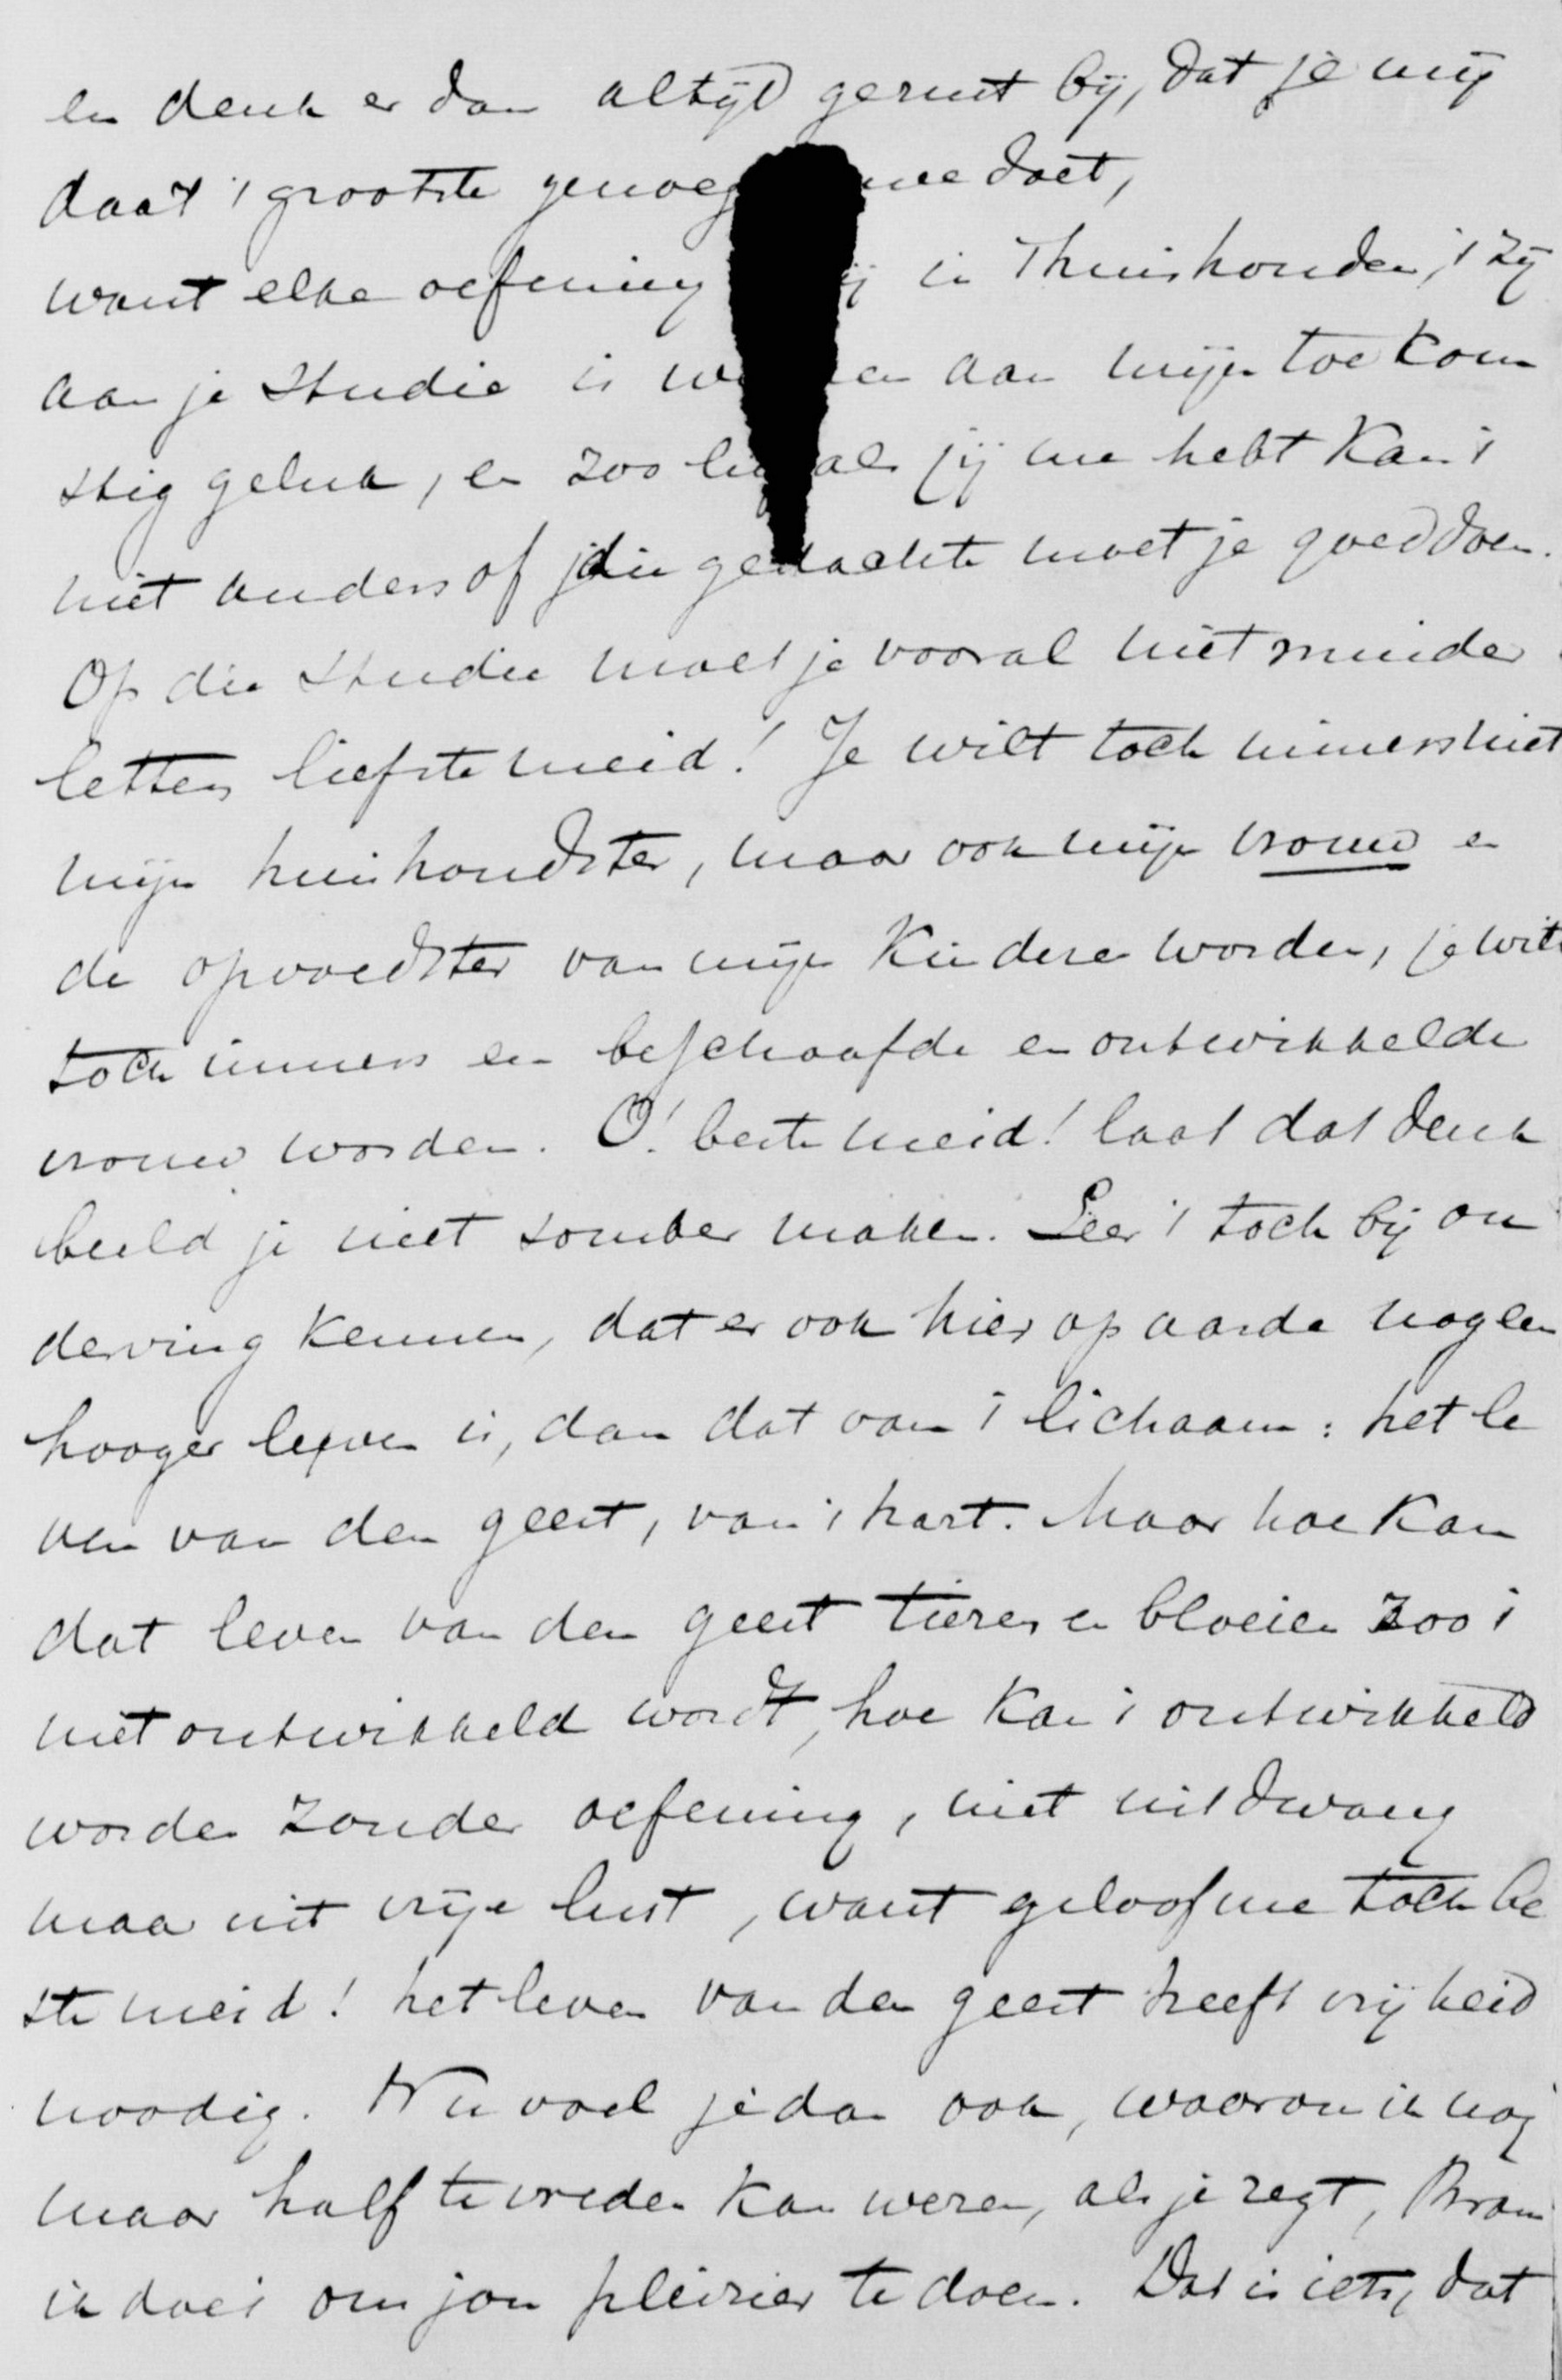 en denk er dan altijd gerust bij, dat je mij
daar 't grootste genoeg mee doet,
want elke oefening ij in 't huishouden, 't zij
aan je studie is we en aan mijn toekom
stig geluk, en zoo li als jij me hebt kan 't
niet anders of die gedachte moet je goed doen.
Op die studie moet je vooral niet minder
letten liefste meid! Je wilt toch immers niet
mijn huishoudster, maar ook mijn vrouw en
de opvoedster van mijn kinderen worden, je wilt
toch immers een beschaafde en ontwikkelde
vrouw worden. O! beste meid! laat dat denk
beeld je niet somber maken. Leer 't toch bij on
dervinding kennen, dat er ook hier op aarde nog een
hooger leven is, dan dat van 't lichaam: het le
ven van den geest, van 't hart. Maar hoe kan
dat leven van den geest tieren en bloeien zoo 't
niet ontwikkeld wordt, hoe kan 't ontwikkeld
worden zonder oefening, niet uit dwang
maar uit vrije lust, want geloof me toch be
ste meid! het leven van den geest heeft vrijheid
noodig. Nu voel je dan ook, waarom ik nog
maar half tevreden kan wezen, als je zegt, Bram
ik doe 't om jou pleizier te doen. Dat is iets, dat